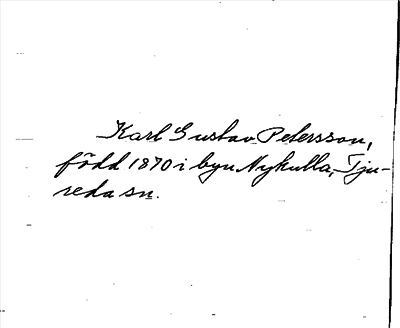 Karl Gustav Petersson,
född 1870 i byn Nykulla, Tju-
reda sn.